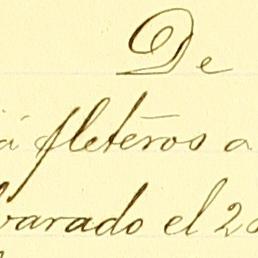 De
á fleteros a
varado el 20